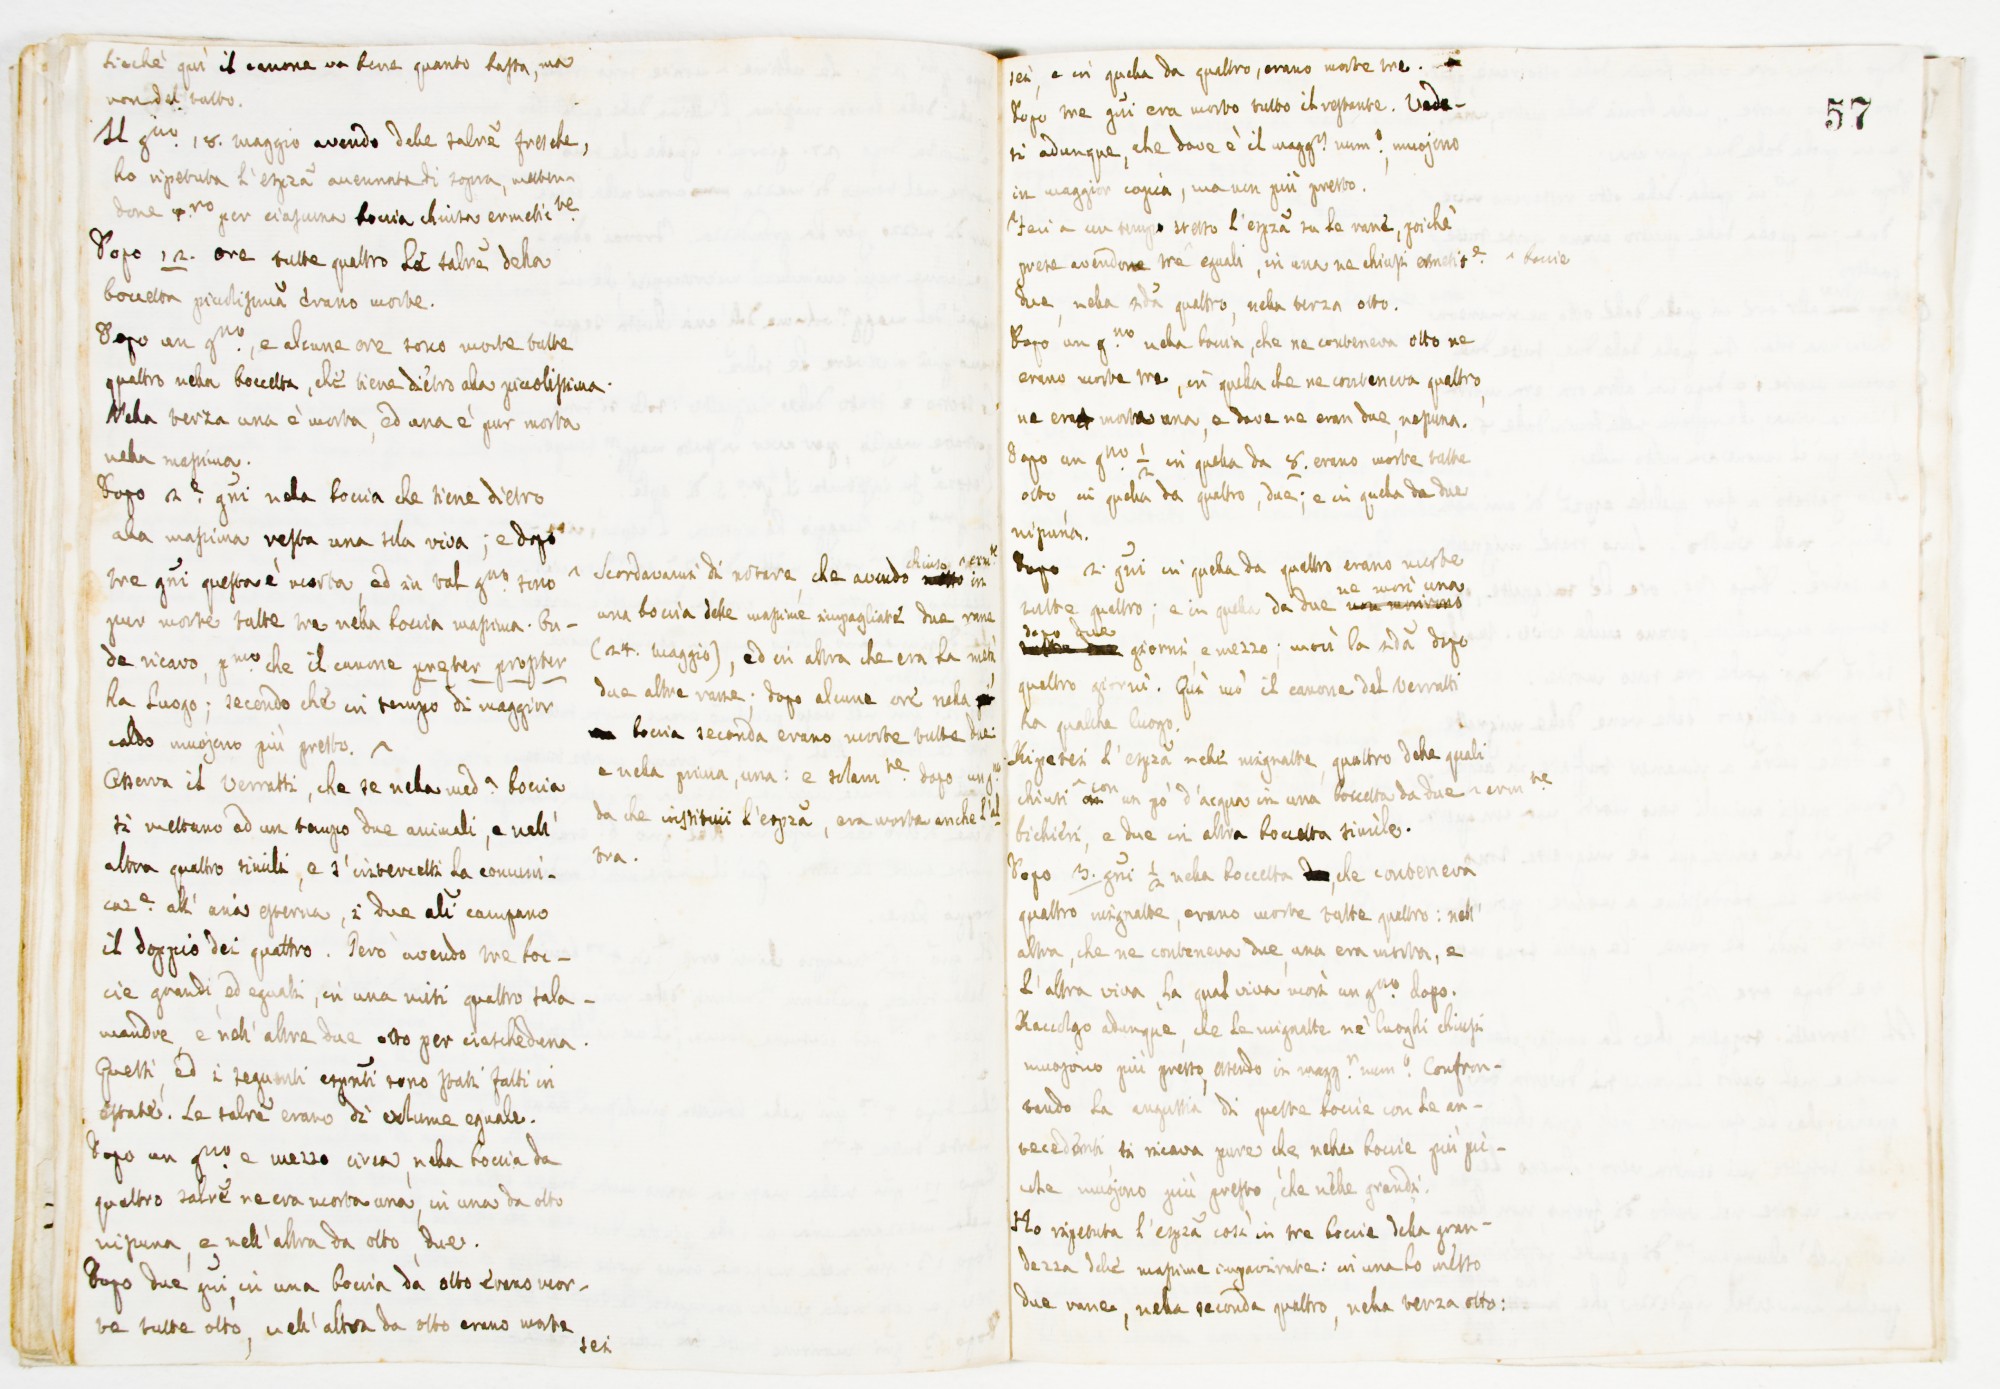 sicchè qui il canone va bene quanto basta, ma
non del tutto.
Il gno. 18. maggio avendo delle salre fresche,
ho ripetuta l'espza accennata di sopra, metten-
done 4.ro per ciascuna boccia chiusa ermeticte.
Dopo 12. ore tutte quattro le salre della
boccetta piccolissima erano morte.
Dopo un gno., e alcune ore sono morte tutte
quattro nella boccetta, che tiene dietro alla piccolissima.
Nella terza una è morta, ed una è pur morta
nella massima.
Dopo 2. gni nela boccia che tiene dietro
alla massima resta una sola viva; e dopo
tre gni questa è morta, ed in tal gno. sono
pur morte tutte tre nella boccia massima. On-
de ricavo, pmo. che il canone preter propter
ha luogo; secondo che in tempo di maggior
caldo muojono più presto. ^
Osserva il Verratti, che se nella meda. boccia
si mettano ad un tempo due animali, e nell'
altra quattro simili, e s'intercetti la comuni-
caze. all' aria esterna, i due ali campano
il doppio dei quattro. Però avendo tre boc-
cie grandi, ed eguali, in una misi quattro sala-
mandre, e nell' altre due otto per ciascheduna.
Questi, ed i seguenti espnti sono stati fatti in
estate. Le salre erano di volume eguale.
Dopo un gno. e mezzo circa, nella boccia da
quattro salre ne era morta una, in una da otto
nissuna, e nell' altra da otto, due.
Dopo due gni, in una boccia da otto erano mor-
te tutte otto, nell' altra da otto erano morte
sei
^ Scordavami di notare, che avendo chiuso erme. in
una boccia delle massime impagliate due rane
(24. maggio), ed in altra che era la metà
due altre rane; dopo alcune ore nella
boccia seconda erano morte tutte due
e nella prima, una: e solamte. dopo un gno
da che instituii l'espza, era morta anche l'al-
tra.
57
sei, e in quella da quattro, erano morte tre.
Dopo tre gni era morto tutto il restante. Vede-
si adunque, che dove è il maggr. numo., muojono
in maggior copia, ma non più presto.
Feci a un tempo stesso l'espza su le rane, poichè
prese avendone tre eguali, in una ne chiusi ermete. ^ boccie
due, nella 2da quattro, nella terza otto.
Dopo un gno. nella boccia, che ne conteneva otto ne
erano morte tre, in quella che ne conteneva quattro
ne era morta una, e dove ne eran due, nessuna.
Dopo un gno. 1/2 in quella da 8. erano morte tutte
otto, in quella da quattro, due; e in quella da due
nissuna.
Dopo 2. gni in quella da quattro erano morte
tutte quattro; e in quella da due non morirono ne morì una
dopo due giorni, e mezzo; morì la 2da dopo
quattro giorni. Qui mò il canone del Verratti
ha qualche luogo.
Ripetei l'espza nelle mignatte, quattro delle quali
chiusi ^ con un pò d'acqua in una boccetta da due ^ ermte.
bichieri, e due in altra boccetta simile.
Dopo 3. gni 1/2 nella boccetta, che conteneva
quattro mignatte, erano morte tutte quattro: nell'
altra, che ne conteneva due, una era morta, e
l'altra viva, la qual viva morì un gno. dopo.
Raccolgo adunque, che le mignatte ne' luoghi chiusi
muojono più presto, essendo in maggr. numo. Confron-
tando la angustia di queste boccie con le an-
tecedenti si ricava pure che nelle boccie più pic-
cole muojono più presto, che nelle grandi.
Ho ripetuta l'espza così in tre boccie della gran-
dezza delle massime impavirate: in una ho messo
due rane, nella seconda quattro, nella terza otto: